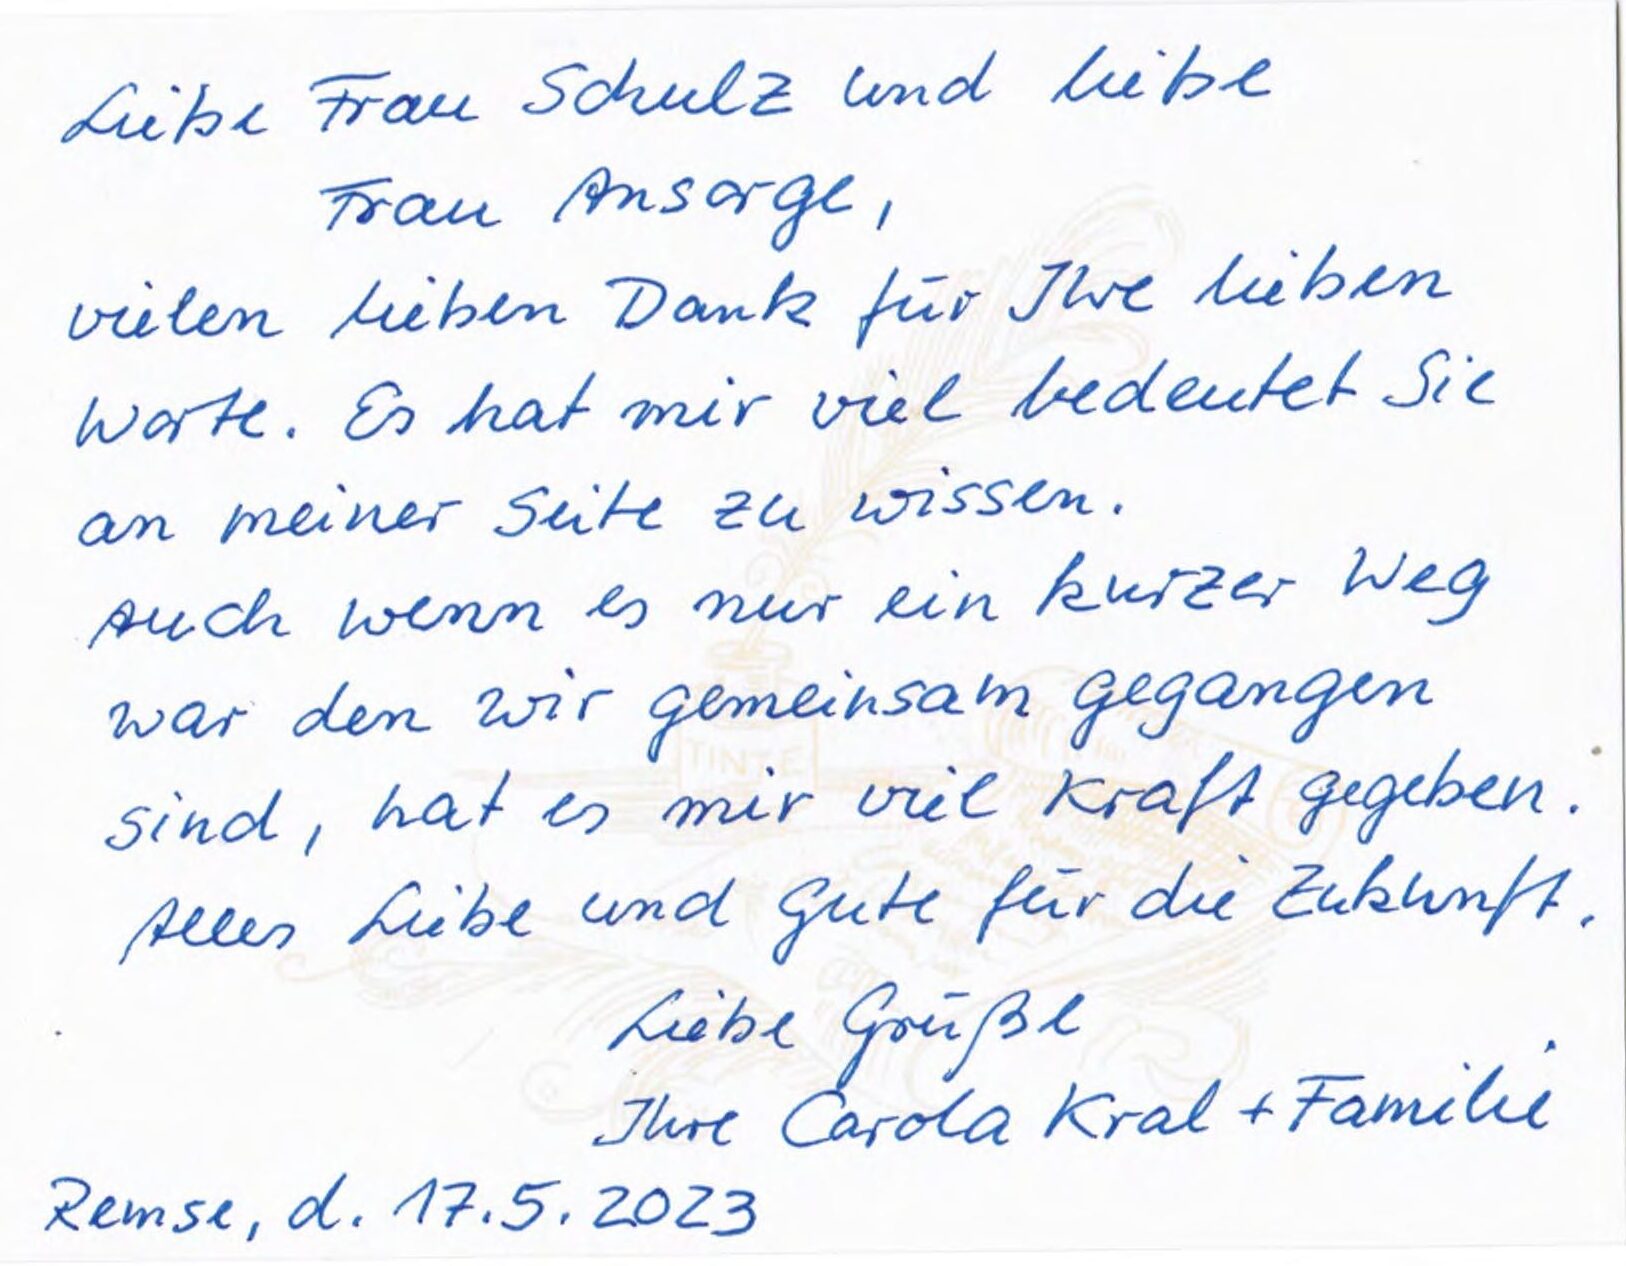 Liebe Frau Schulz und liebe
Frau Ansorge,
vielen lieben Dank für Ihre lieben
Worte. Es hat mir viel bedeutet Sie
an meiner Seite zu wissen.
Auch wenn es nur ein kurzer Weg
war den wir gemeinsam gegangen
sind, hat es mir viel Kraft gegeben.
Alles Liebe und Gute für die Zukunft.
Liebe Grüße
Ihre Carola Kral + Familie
Remse, d. 17.5.2023
TINTE